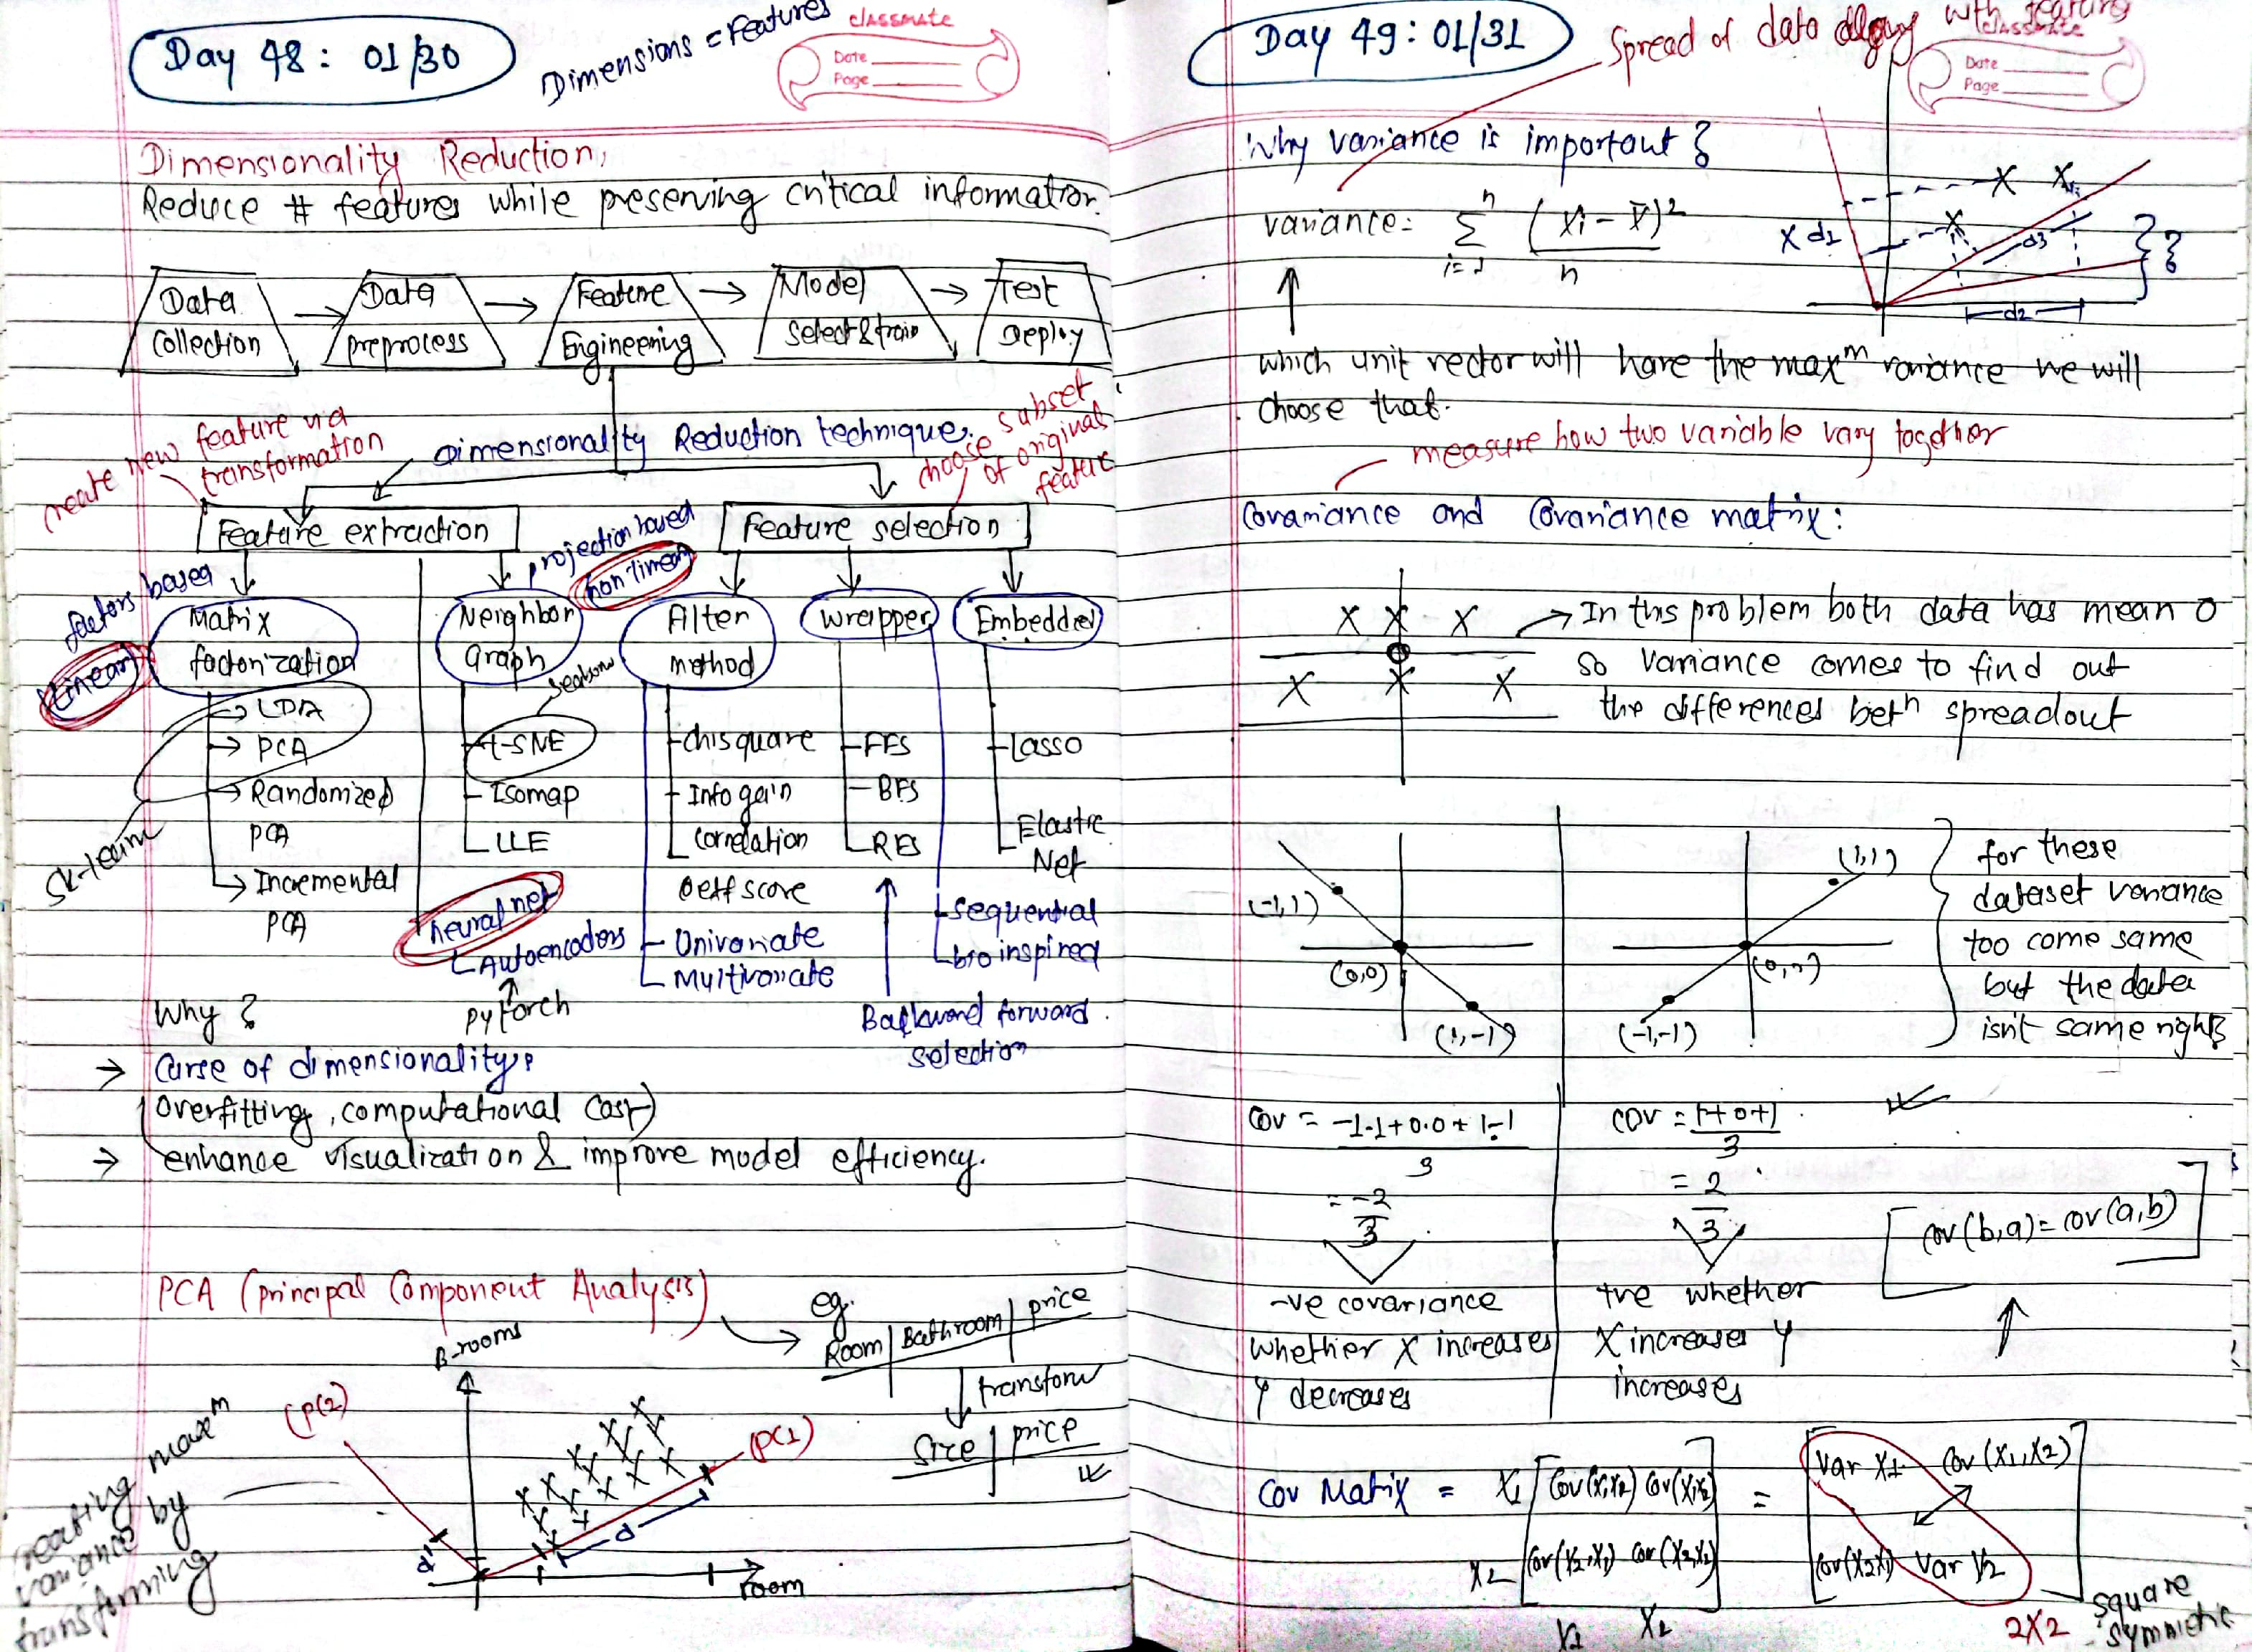 Day 48 : 01/30
Dimensions = Features
classmate
Date
Page
Dimensionality Reduction,
Reduce # features while preserving critical information.
Data
Collection
Data
preprocess
Feature
Engineering
Model
Select & train
Test
Deploy
create new feature via
transformation
Dimensionality Reduction technique.
choose subset
of original
feature
Feature extraction
Feature selection
factors based
Linear
Matrix
factorization
LDA
PCA
Randomized
PCA
Incremental
PCA
projection based
non linear
Neighbor
Graph
t-SNE
Isomap
LLE
neural net
Autoencoders
PyTorch
Filter
method
chisquare
Info gain
Correlation
score
Univariate
Multivariate
Wrapper
FFS
BFS
RFS
sequential
bio inspired
Backward forward
selection
Embedded
Lasso
Elastic
Net
Why ?
→ Curse of dimensionality
(Overfitting, computational Cost)
→ enhance visualization & improve model efficiency.
PCA (Principal Component Analysis)
eg.
Room | Bathroom | price
transform
Size | price
B-rooms
(PC2)
(PC1)
d
d'
room
creating maxᵐ
variance by
transforming
Day 49 : 01/31
Spread of data along with feature
classmate
Date
Page
Why variance is important ?
variance = Σ (xi - x̄)²
i=1 n
n
X d1
d3
d2
which unit vector will have the maxᵐ variance we will
choose that.
measure how two variable vary together
Covariance and Covariance matrix:
X X X
X X X
→ In this problem both data has mean 0
so variance comes to find out
the differences betⁿ spreadout
(-1,1)
(0,0)
(1,-1)
(1,1)
(-1,-1)
for these
dataset variance
too come same
but the data
isn't same right
Cov = -1.1+0.0+1.-1
3
= -2
3
-ve covariance
whether X increases
Y decreases
COV = 1+0+1
3
= 2
3
+ve whether
X increases Y
increases
cov(b,a) = cov(a,b)
Cov Matrix =
X1
X2
Cov(x2,x1) Cov(x2,x2)
X1 X2
=
Var X1 Cov(X1,X2)
Cov(X2X1) Var X2
2X2
square
symmetric